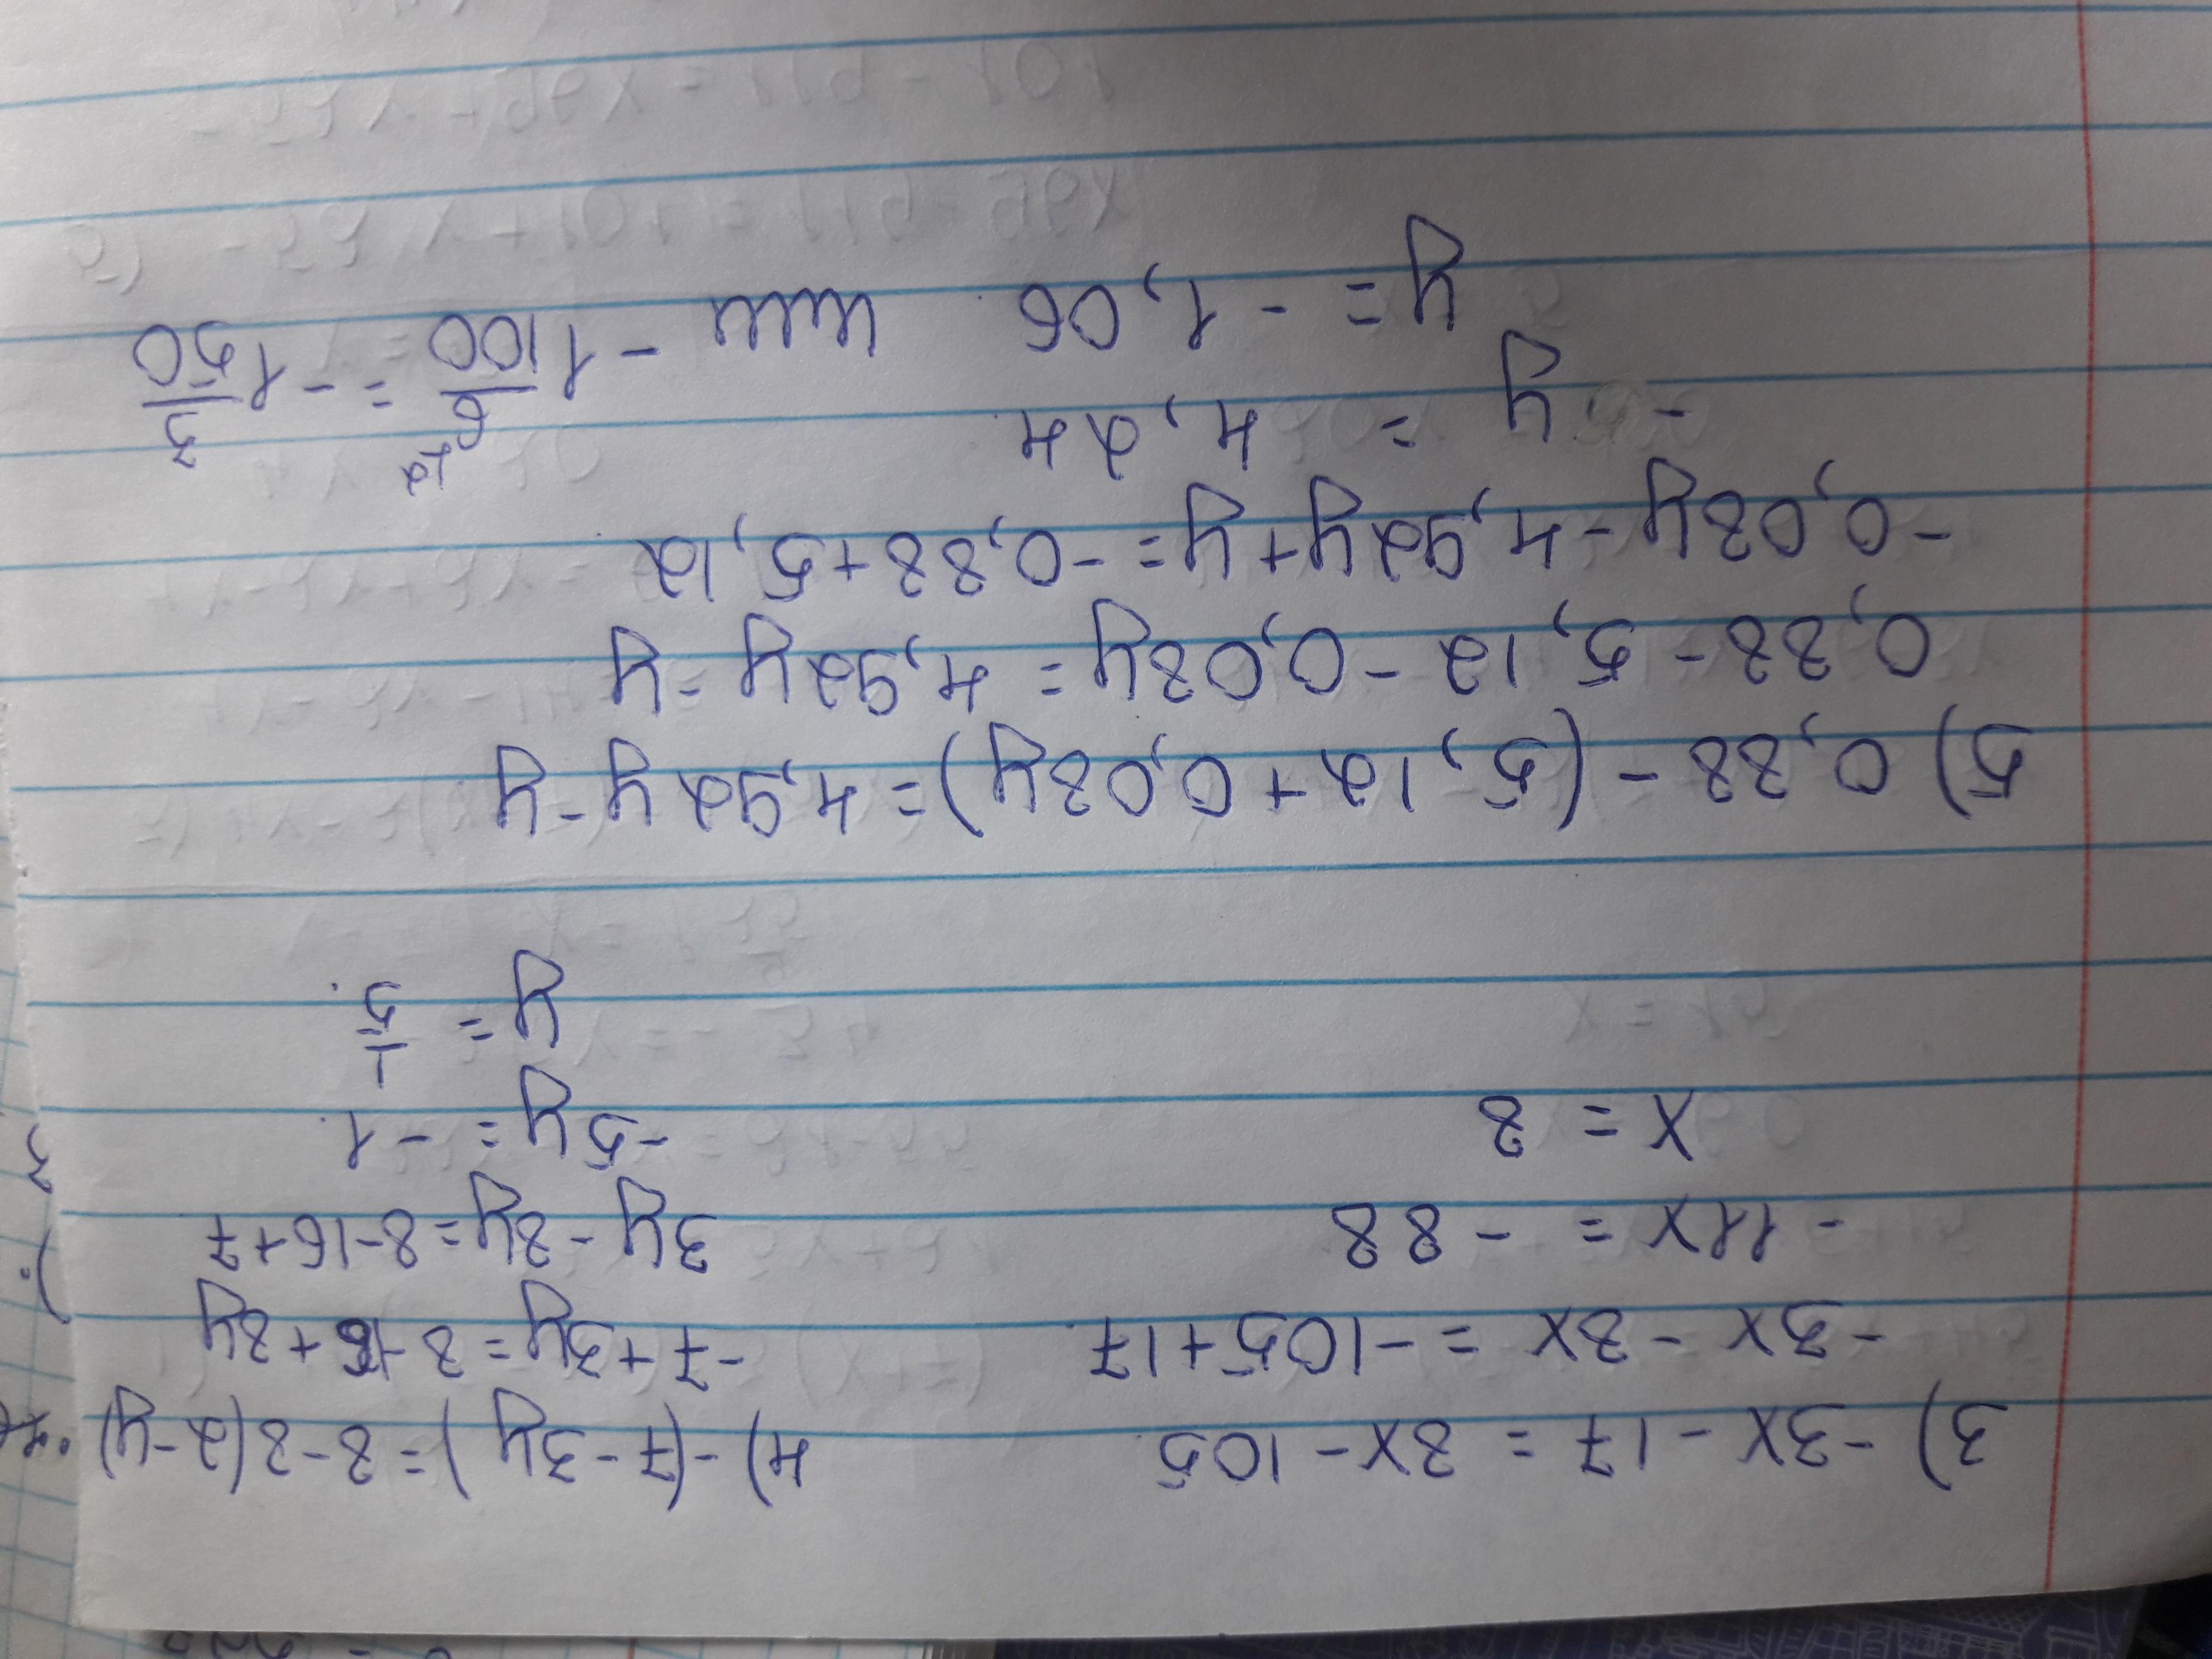 3) -3x - 17 = 8x - 105
-3x - 8x = -105+17
-11x = -88
x = 8
4) -(7-3y)=8-8(2-y)
-7+3y=8-16+8y
3y-8y=8-16+7
-5y=-1.
y= 1/5.
5) 0,88-(5,12+0,08y)=4,92y-y
0,88-5,12-0,08y=4,92y-y
-0,08y-4,92y+y=-0,88+5,12
- y = 4,24
y = -1,06 или -1 6/100 = -1 3/50